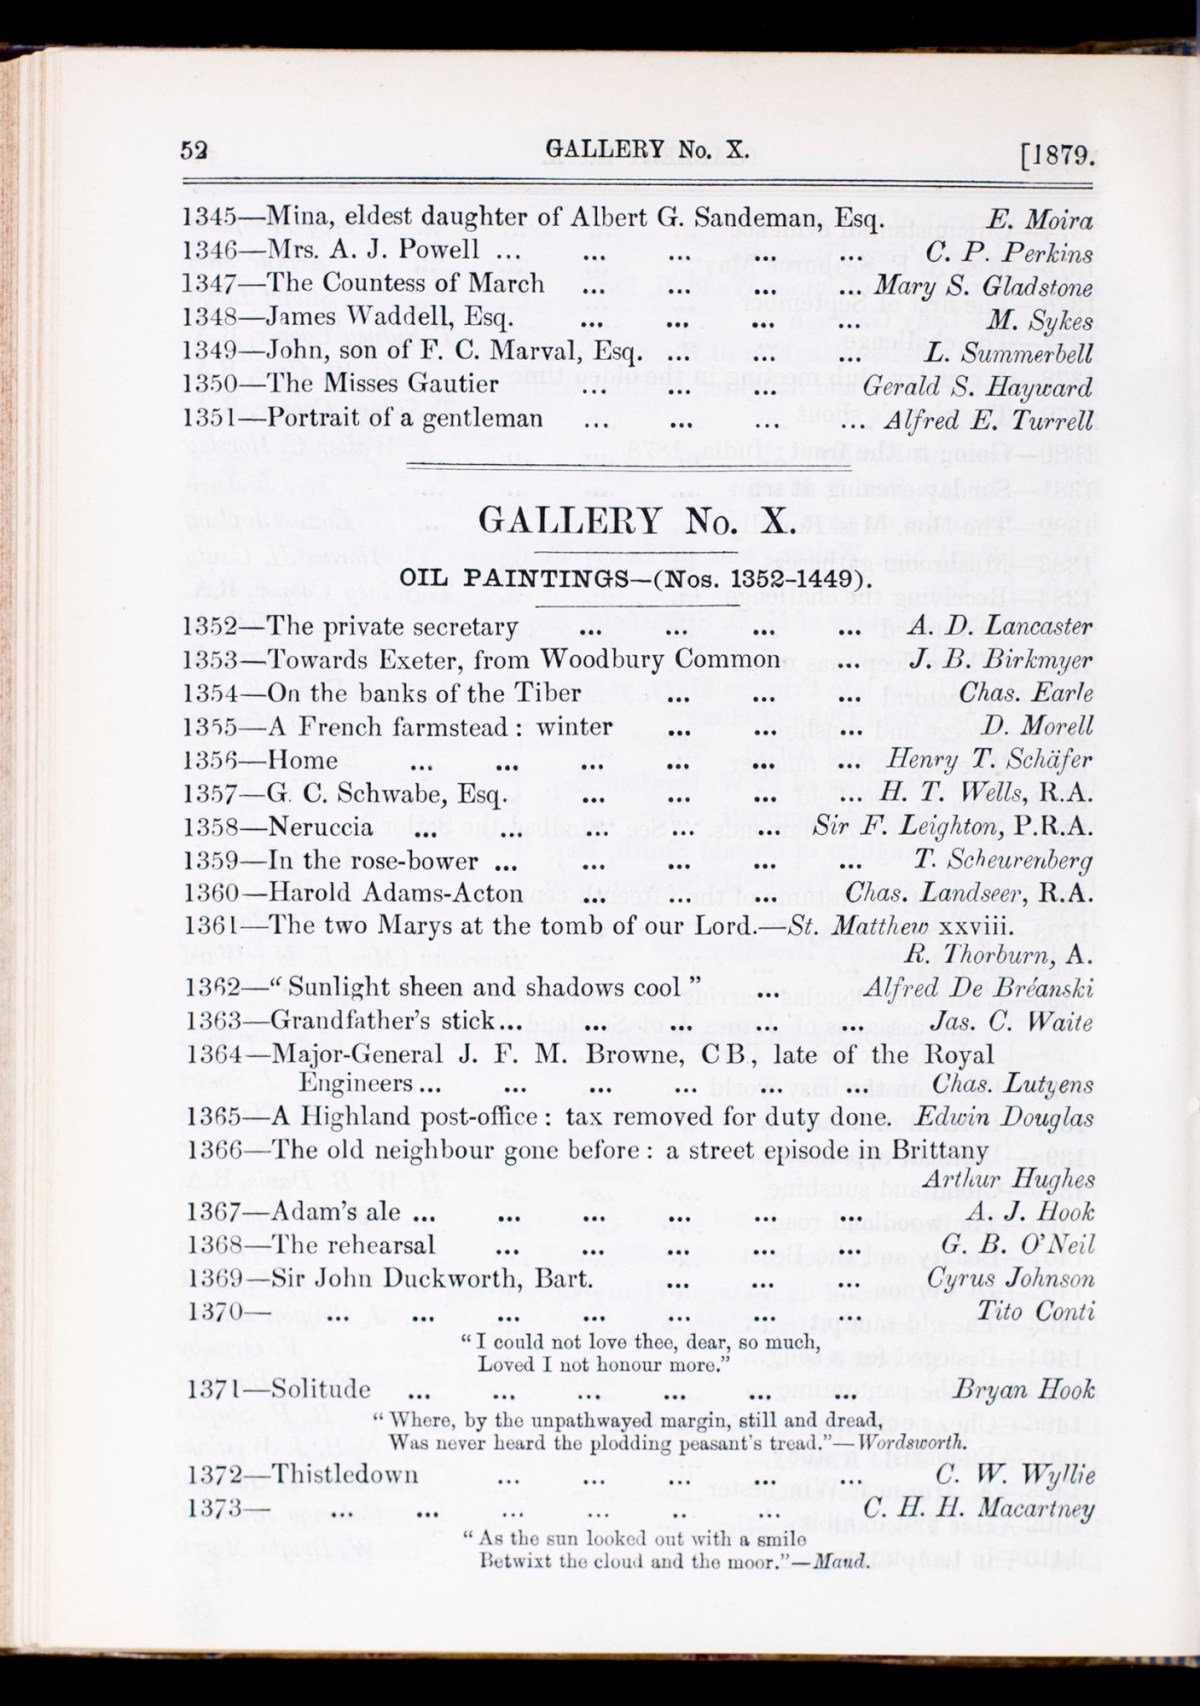 52 GALLERY No. X. [1879.
1345—Mina, eldest daughter of Albert G. Sandeman, Esq. E. Moira
1346—Mrs. A. J. Powell ... ... ... ... ... C. P. Perkins
1347—The Countess of March ... ... ... ... Mary S. Gladstone
1348—James Waddell, Esq. ... ... ... ... M. Sykes
1349—John, son of F. C. Marval, Esq. ... ... ... L. Summerbell
1350—The Misses Gautier ... ... ... Gerald S. Hayward
1351—Portrait of a gentleman ... ... ... ... Alfred E. Turrell
GALLERY No. X.
OIL PAINTINGS—(Nos. 1352-1449).
1352—The private secretary ... ... ... ... A. D. Lancaster
1353—Towards Exeter, from Woodbury Common ... J. B. Birkmyer
1354—On the banks of the Tiber ... ... ... Chas. Earle
1355—A French farmstead : winter ... ... ... D. Morell
1356—Home ... ... ... ... ... ... Henry T. Schäfer
1357—G. C. Schwabe, Esq. ... ... ... ... H. T. Wells, R.A.
1358—Neruccia ... ... ... ... ... Sir F. Leighton, P.R.A.
1359—In the rose-bower ... ... ... ... ... T. Scheurenberg
1360—Harold Adams-Acton ... ... ... Chas. Landseer, R.A.
1361—The two Marys at the tomb of our Lord.—St. Matthew xxviii.
R. Thorburn, A.
1362—“ Sunlight sheen and shadows cool ” ... Alfred De Bréanski
1363—Grandfather’s stick... ... ... ... ... Jas. C. Waite
1364—Major-General J. F. M. Browne, C B, late of the Royal
Engineers... ... ... ... ... ... Chas. Lutyens
1365—A Highland post-office : tax removed for duty done. Edwin Douglas
1366—The old neighbour gone before : a street episode in Brittany
Arthur Hughes
1367—Adam’s ale ... ... ... ... ... ... A. J. Hook
1368—The rehearsal ... ... ... ... ... G. B. O’Neil
1369—Sir John Duckworth, Bart. ... ... ... Cyrus Johnson
1370— ... ... ... ... ... ... ... Tito Conti
“ I could not love thee, dear, so much,
Loved I not honour more.”
1371—Solitude ... ... ... ... ... ... Bryan Hook
“ Where, by the unpathwayed margin, still and dread,
Was never heard the plodding peasant’s tread.”—Wordsworth.
1372—Thistledown ... ... ... ... ... C. W. Wyllie
1373— ... ... ... ... .. ... C. H. H. Macartney
“ As the sun looked out with a smile
Betwixt the cloud and the moor.”—Maud.